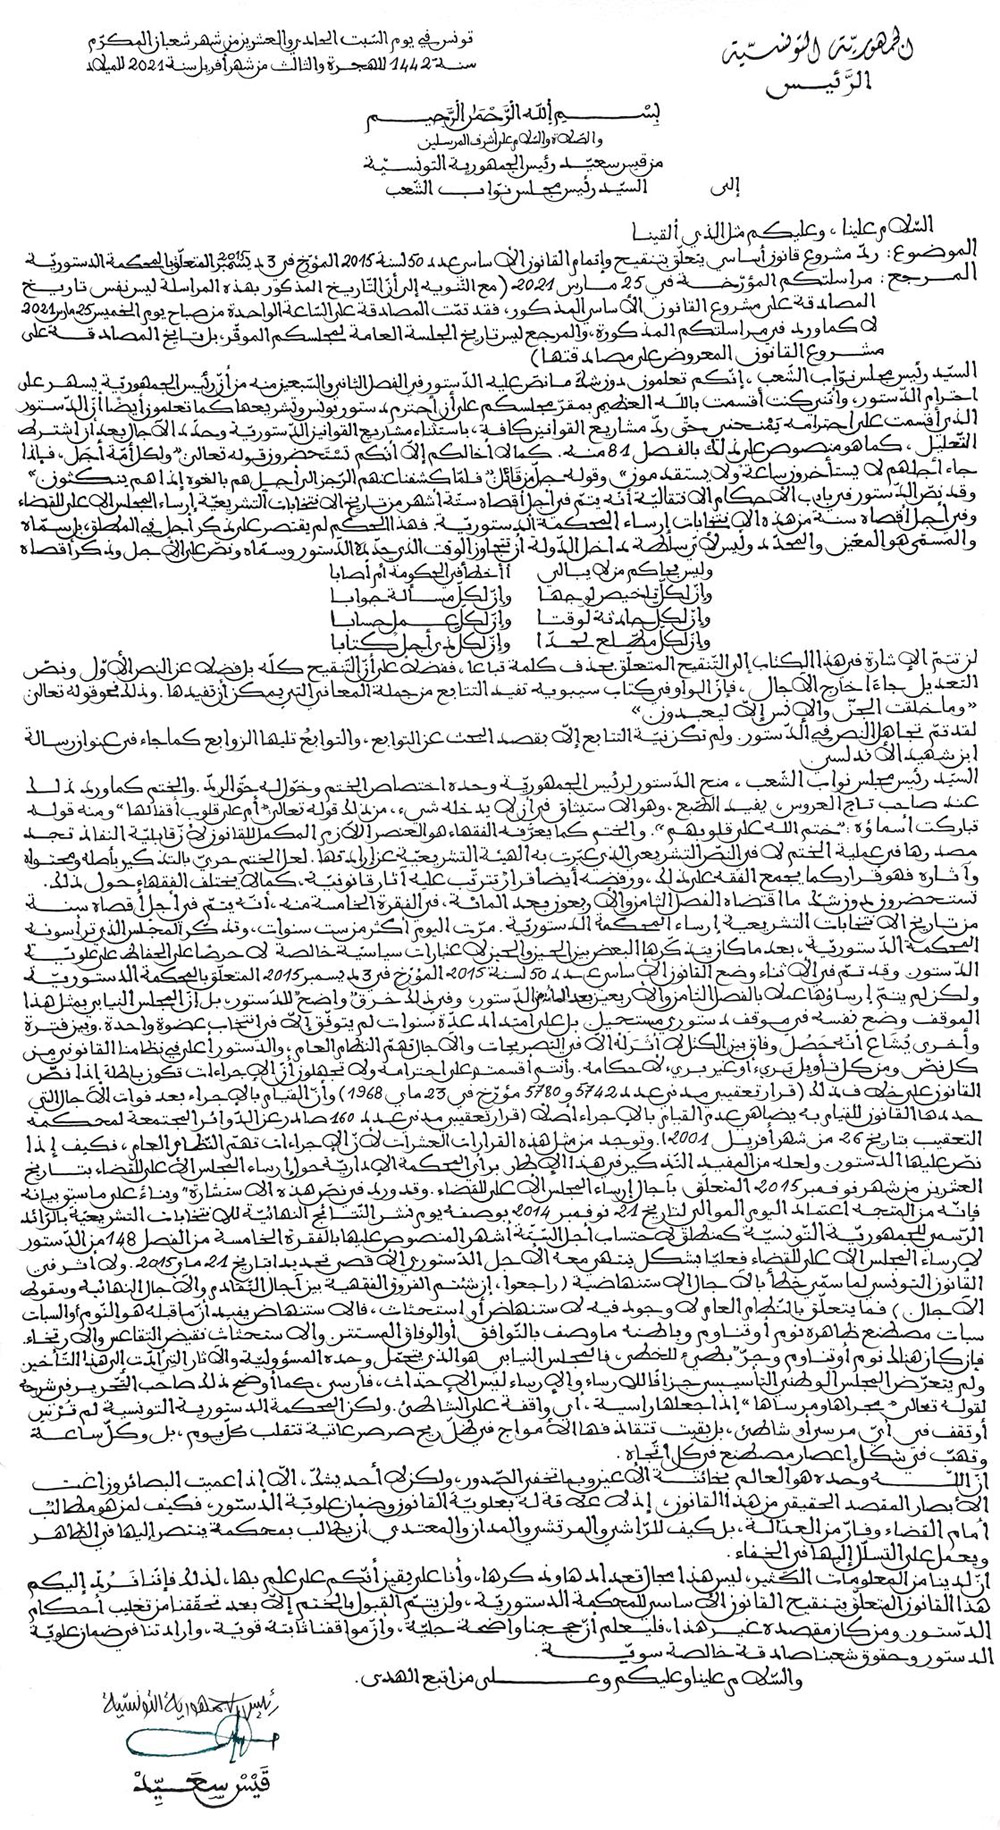 الجمهورية التونسية
الرئيس
تونس في يوم السّبت الحادي والعشرين من شهر شعبان المكرّم
سنة 1442 للهجرة والثالث من شهر أفريل سنة 2021 للميلاد
بسم الله الرّحمن الرّحيم
والصّلاة والسّلام على أشرف المرسلين
من قيس سعيّد رئيس الجمهورية التونسيّة
إلى السيّد رئيس مجلس نوّاب الشّعب
السّلام علينا، وعليكم مثل الذي ألقينا
الموضوع: ردّ مشروع قانون أساسي يتعلّق بتنقيح وإتمام القانون الأساسي عدد 50 لسنة 2015 المؤرّخ في 3 ديسمبر 2015 المتعلّق بالمحكمة الدستوريّة
المرجع: مراسلتكم المؤرّخة في 25 مارس 2021 (مع التنويه إلى أنّ التاريخ المذكور بهذه المراسلة ليس نفس تاريخ
المصادقة على مشروع القانون الأساسي المذكور، فقد تمّت المصادقة على السّاعة الواحدة من صباح يوم الخميس 25 مارس 2021
لا كما ورد في مراسلتكم المذكورة، والمرجع ليس تاريخ الجلسة العامة لمجلسكم الموقّر، بل تاريخ المصادقة على
مشروع القانون المعروض على مصادقتها)
السيّد رئيس مجلس نوّاب الشّعب، إنّكم تعلمون دون شكّ ما نصّ عليه الدّستور في الفصل الثاني والسّبعين منه من أنّ رئيس الجمهوريّة يسهر على
احترام الدّستور، وأنّني كنت أقسمت بالله العظيم بمقرّ مجلسكم على أن أحترم دستور تونس وتشريعها كما تعلمون أيضا أنّ الدّستور
الذي أقسمت على احترامه يمنحني حقّ ردّ مشاريع القوانين كافة، باستثناء مشاريع القوانين الدّستوريّة وحدّد الآجال بعد أن اشترط
التّعليل، كما هو منصوص على ذلك بالفصل 81 منه. كما لا أخالكم إلاّ أنّكم تستحضرون قوله تعالى "ولكلّ أمّة أجل، فإذا
جاء أجلهم لا يستأخرون ساعة ولا يستقدمون" وقوله جلّ من قائل "فلمّا كشفنا عنهم الرّجز إلى أجل هم بالغوه إذا هم ينكثون"
وقد نصّ الدّستور في باب الأحكام الانتقاليّة أنّه يتمّ في أجل أقصاه ستة أشهر من تاريخ الانتخابات التشريعيّة إرساء المجلس الأعلى للقضاء
وفي أجل أقصاه سنة من هذه الانتخابات إرساء المحكمة الدستوريّة. فهذا الحكم لم يقتصر على ذكر أجل في المطلق، بل سمّاه
والمسمّى هو المعيّن والمحدّد وليس لأيّ سلطة داخل الدّولة أن تتجاوز الوقت الذي حدّده الدّستور وسمّاه ونصّ على الأجل وذكر أقصاه
وليس بحاكم من لا يبالي أأخطأ في الحكومة أم أصابا
وإنّ لكلّ تلخيص لوجها وإنّ لكلّ مسألة جوابا
وإنّ لكلّ حادثة لوقتا وإنّ لكلّ عمل حسابا
وإنّ لكلّ مطّلع لحدّا وإنّ لكلّ ذي أجل كتابا
لن تتمّ الإشارة في هذا الكتاب إلى التّنقيح المتعلّق بحذف كلمة تباعا، ففضلا على أنّ التّنقيح كلّه بل فضلا عن النص الأوّل ونصّ
التعديل جاءا خارج الآجال، فإنّ الواو في كتاب سيبويه تفيد التتابع من جملة المعاني التي يمكن أن تفيدها. وذلك نحو قوله تعالى
«وما خلقت الجنّ والإنس إلاّ ليعبدون»
لقد تمّ تجاهل النصّ في الدّستور. ولم تكن نيّة التتابع إلاّ بقصد البحث عن التوابع، والتوابع تليها الزوابع كما جاء في عنوان رسالة
ابن شهيد الأندلسي
السيّد رئيس مجلس نواب الشّعب، منح الدّستور لرئيس الجمهوريّة وحده اختصاص الختم وخوّل له حقّ الردّ. والختم كما ورد ذلك
عند صاحب تاج العروس، يفيد الطّبع، وهو الاستيثاق من أن لا يدخله شيء، من ذلك قوله تعالى "أم على قلوب أقفالها" ومنه قوله
تباركت أسماؤه: "ختم الله على قلوبهم". والختم كما يعرّفه الفقهاء هو العنصر اللاّزم المكمل للقانون لأنّ قابليّة النفاذ تجد
مصدرها في عملية الختم لا في النصّ التشريعي الذي عبّرت به الهيئة التشريعيّة عن إرادتها. لعلّ الختم حريّ بالتذكير بأصله ومحتواه
وآثاره فهو قرار كما يجمع الفقه على ذلك، ورفضه أيضا قرار تترتّب عليه آثار قانونيّة. كما لا يختلف الفقهاء حول ذلك.
تستحضرون دون شكّ ما اقتضاه الفصل الثامن والأربعون بعد المائة، في الفقرة الخامسة منه، أنّه يتمّ في أجل أقصاه سنة
من تاريخ الانتخابات التشريعية إرساء المحكمة الدستوريّة. مرّت اليوم أكثر من ستّ سنوات، وتذكّر المجلس الذي ترأسونه
المحكمة الدّستوريّة، بعد ما كان يتذكّرها البعض بين الحين والحين لاعتبارات سياسيّة خالصة لا حرصا على الحفاظ على علويّة
الدّستور. وقد تمّ في الأثناء وضع القانون الأساسي عدد 50 لسنة 2015 المؤرّخ في 3 ديسمبر 2015 المتعلّق بالمحكمة الدستوريّة
ولكن لم يتمّ إرساؤها عملا بالفصل الثامن والأربعين بعد المائة من الدّستور، وفي ذلك خرق "واضح" للدّستور، بل إنّ المجلس النيابي بمثل هذا
الموقف وضع نفسه في موقف دستوري مستحيل بل على امتداد عدّة سنوات لم يتوفّق إلاّ في انتخاب عضوة واحدة. وبين فترة
وأخرى يُشاع أنّه حَصُل وفاق بين الكتل لا أثر له إلاّ في التصريحات والآجال تهمّ النظام العام، والدّستور أعلى في نظامنا القانوني من
كلّ نصّ ومن كلّ تأويل بريء أو غير بريء لأحكامه. وأنتم أقسمتم على احترامه ولا تجهلون أنّ الإجراءات تكون باطلة إذا نصّ
القانون على خلاف ذلك (قرار تعقيبي مدني عدد 5742 و 5780 مؤرّخ في 23 ماي 1968) وأنّ القيام بالإجراء بعد فوات الآجال التي
حددها القانون للقيام به يضاهي عدم القيام بالإجراء أصلا (قرار تعقيبي مدني عدد 160 صادر عن الدّوائر المجتمعة لمحكمة
التعقيب بتاريخ 26 من شهر أفريل 2001). وتوجد من مثل هذه القرارات العشرات لأنّ الإجراءات تهمّ النّظام العام، فكيف إذا
نصّ عليها الدستور. ولعله من المفيد التذكير في هذا الإطار برأي المحكمة الإداريّة حول إرساء المجلس الأعلى للقضاء بتاريخ
العشرين من شهر نوفمبر 2015 المتعلّق بآجال إرساء المجلس الأعلى للقضاء. وقد ورد في نصّ هذه الاستشارة "وبناءً على ما سبق بيانه
فإنّه من المتّجه اعتماد اليوم الموالي لتاريخ 21 نوفمبر 2014 بوصفه يوم نشر النّتائج النهائيّة للانتخابات التشريعيّة بالرّائد
الرّسمي للجمهورية التونسيّة كمنطلق لاحتساب أجل السّتة أشهر المنصوص عليها بالفقرة الخامسة من الفصل 148 من الدّستور
لإرساء المجلس الأعلى للقضاء فعليّا بشكل ينتهي معه الأجل الدّستوري الأقصى تحديدا بتاريخ 21 ماي 2015. ولا أثر في
القانون التونسي لما سمّي خطأ بالآجال الاستنهاضية (راجعوا، إن شئتم الفروق الفقهيّة بين آجال التّقادم والآجال النهائيّة وسقوط
الآجال) فما يتعلّق بالنّظام العام لا وجود فيه لاستنهاض أو استحثاث، فالاستنهاض يفيد أنّ ما قبله هو النّوم أو السّبات
سبات مصطنع ظاهره نوم أو تناوم وباطنه ما وصف بالتّوافق أو الوفاق المستتر. والاستحثاث نقيض التقاعس والارتخاء.
فإن كان هنالك نوم أو تناوم وجرّ بطيء للخطى، فالمجلس النيابي هو الذي يتحمّل وحده المسؤوليّة والآثار التي أدّت إلى هذا التأخير
ولم يتعرّض المجلس الوطني التأسيسي جزافا للإرساء والإرساء ليس الإحداث، فأرسى، كما أوضح ذلك صاحب التّحرير في شرحه
لقوله تعالى "مجراها ومرساها" إذا جعلها راسية، أي واقفة على الشاطئ. ولكنّ المحكمة الدستورية التونسية لم تُرْسَ
أو تقف في أيّ مرسى أو شاطئ، بل بقيت تتقاذفها الأمواج في ظلّ ريح صرصر عاتية تتقلب كلّ يوم، بل وكلّ ساعة
وتهبّ في شكل إعصار مصطنع في كلّ اتّجاه.
إنّ اللّه وحده هو العالم بخائنة الأعين وبما تخفي الصّدور، ولكن لا أحد يشكّ، إلاّ إذا عميت البصائر وزاغت
الأبصار المقصد الحقيقي من هذا القانون، إذ لا علاقة له بعلويّة القانون وضمان علويّة الدّستور، فكيف لمن هو مطالب
أمام القضاء وفارّ من العدالة، بل كيف للرّاشي والمرتشي والمدان والمعتدي أن يطالب بمحكمة ينتصر إليها في الظاهر
ويعمل على التسلّل إليها في الخفاء.
إنّ لدينا من المعلومات الكثير، ليس هذا مجال تعدادها وذكرها، وأنا على يقين أنّكم على علم بها، لذلك فإنّنا نردّ إليكم
هذا القانون المتعلّق بتنقيح القانون الأساسي للمحكمة الدستوريّة، ولن يتمّ القبول بالختم إلاّ بعد تحقّقنا من تغليب أحكام
الدّستور ومن كان مقصده غير هذا، فليعلم أنّ حججنا واضحة جليّة، وأنّ مواقفنا ثابتة قويّة، وإرادتنا في ضمان علويّة
الدستور وحقوق شعبنا صادقة خالصة سويّة.
والسّلام علينا وعليكم وعلى من اتّبع الهدى.
رئيس الجمهورية التونسيّة
قيس سعيّد